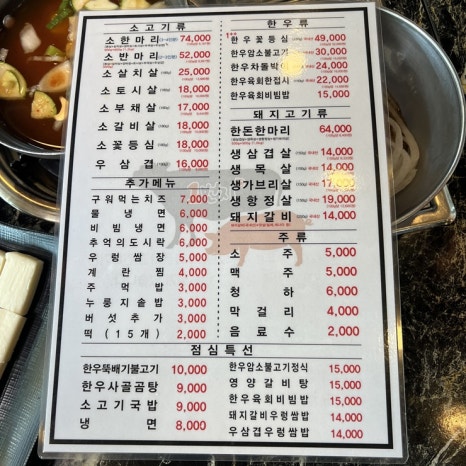 소고기류
소한마리 74,000
소반마리 52,000
소살치살 25,000
소토시살 18,000
소부채살 17,000
소갈비살 18,000
소꽃등심 18,000
우삼겹 16,000
추가메뉴
구워먹는치즈 7,000
물냉면 6,000
비빔냉면 6,000
추억의도시락 6,000
우렁쌈장 5,000
계란찜 4,000
주먹밥 3,000
누룽지솥밥 3,000
버섯추가 3,000
떡(15개) 2,000
한우류
1++
한우꽃등심 49,000
한우암소불고기 30,000
한우차돌박 24,000
한우육회한접시 22,000
한우육회비빔밥 15,000
돼지고기류
한돈한마리 64,000
생삼겹살 14,000
생목살 14,000
생가브리살 17,000
생항정살 19,000
돼지갈비 14,000
주류
소주 5,000
맥주 5,000
청하 6,000
막걸리 4,000
음료수 2,000
점심특선
한우뚝배기불고기 10,000
한우사골곰탕 9,000
소고기국밥 9,000
냉면 8,000
한우암소불고기정식 15,000
영양갈비탕 15,000
한우육회비빔밥 15,000
돼지갈비우렁쌈밥 14,000
우삼겹우렁쌈밥 14,000